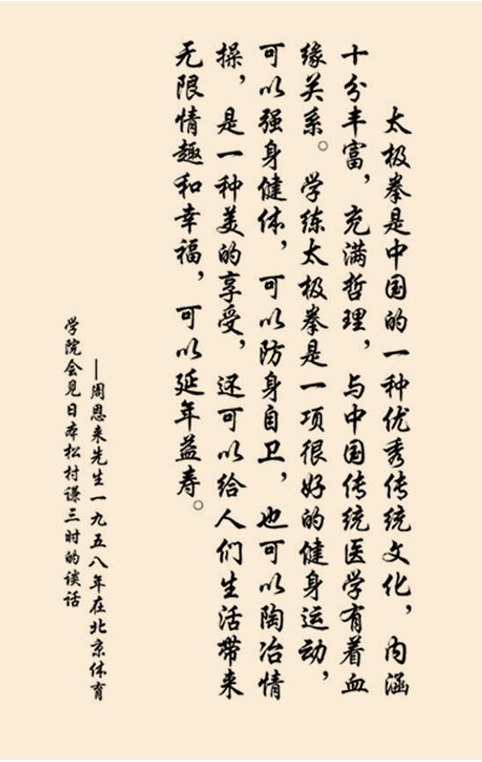 太极拳是中国的一种优秀传统文化，内涵
十分丰富，充满哲理，与中国传统医学有着血
缘关系。学练太极拳是一项很好的健身运动，
可以强身健体，可以防身自卫，也可以陶冶情
操，是一种美的享受，还可以给人们生活带来
无限情趣和幸福，可以延年益寿。
—周恩来先生一九五八年在北京体育
学院会见日本松村谦三时的谈话